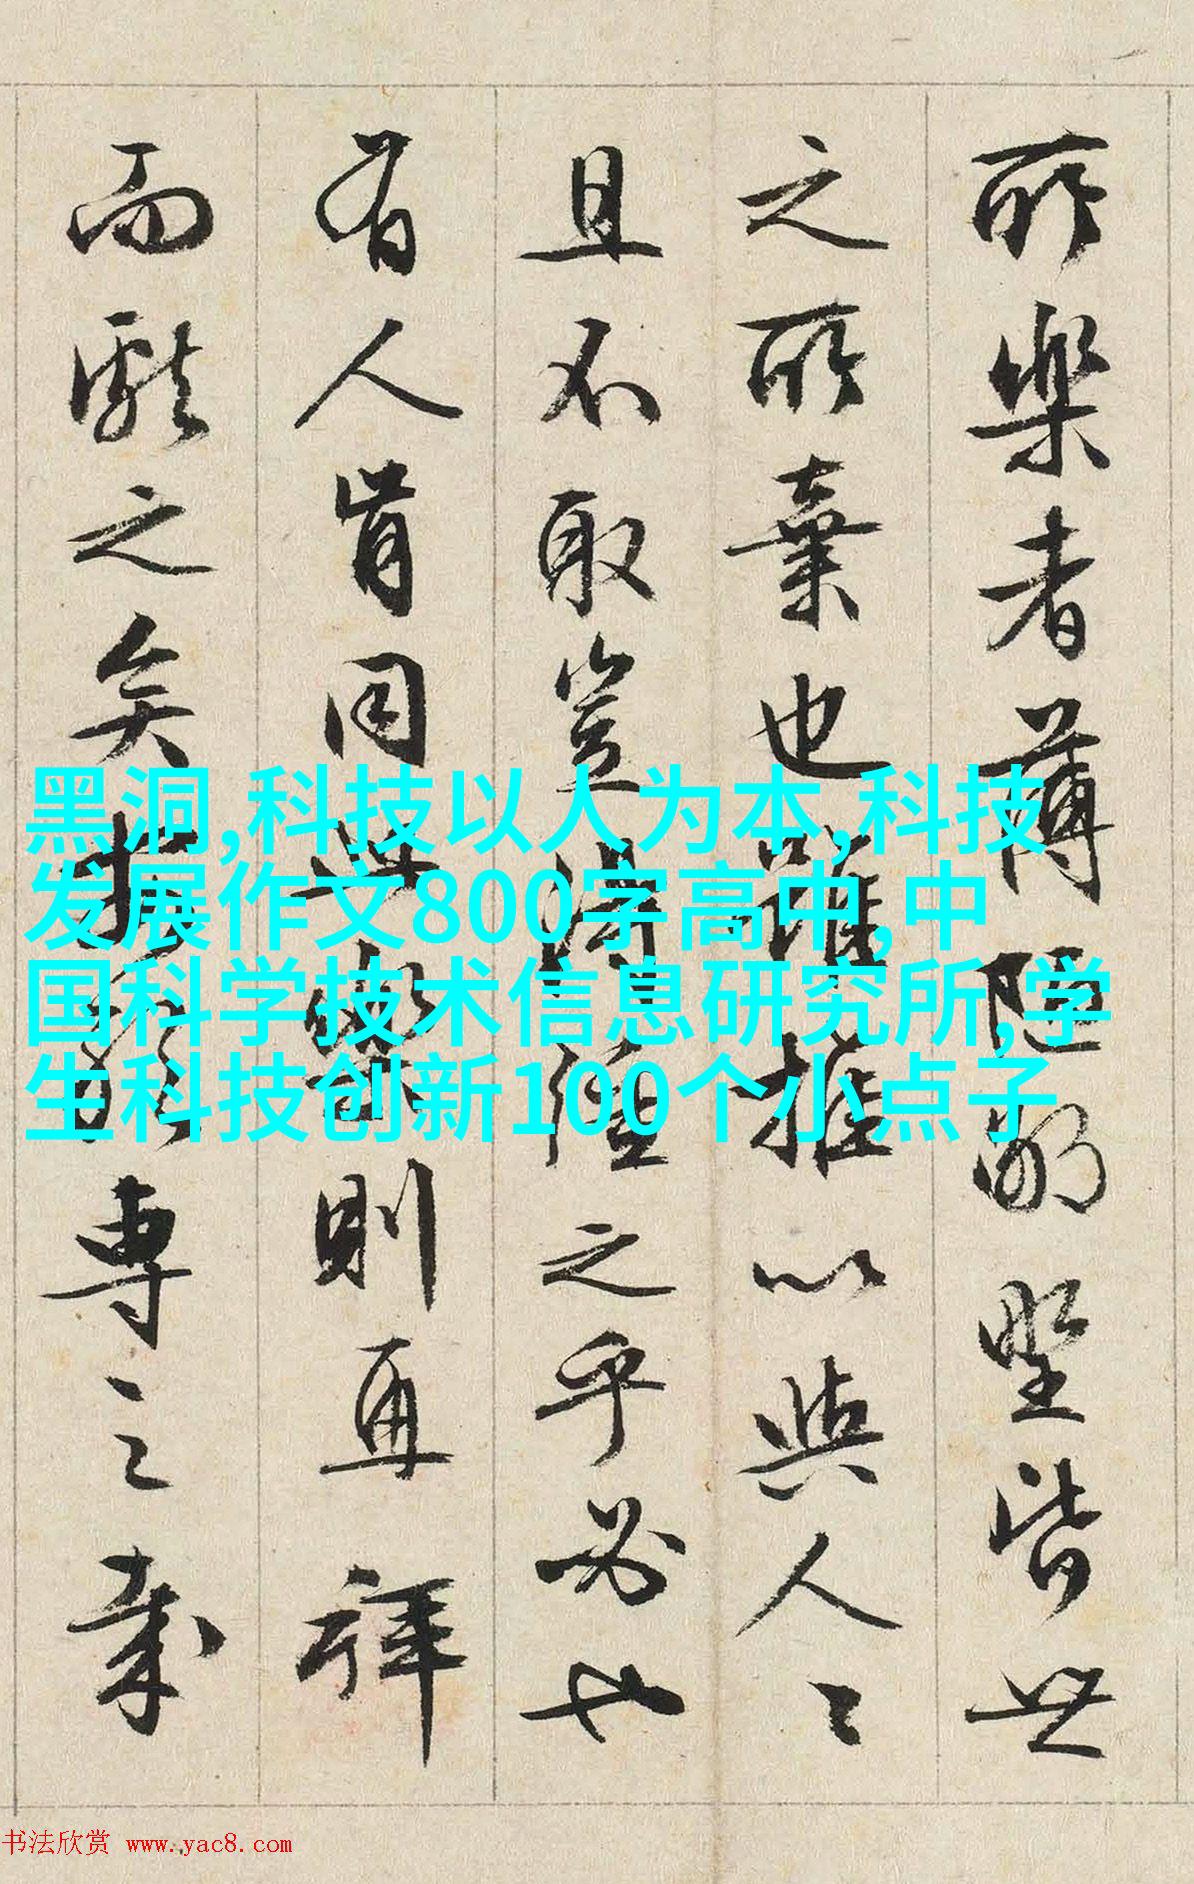 所樂者薄陋鄙野皆世
之所棄也雖推以與人〻
且不取豈得強之乎必也
有人肯同此樂則再拜
而獻之矣專之哉
黑洞,科技以人为本,科技
发展作文800字高中,中
国科学技术信息研究所,学
生科技创新100个小点子
书法欣赏 www.yac8.com